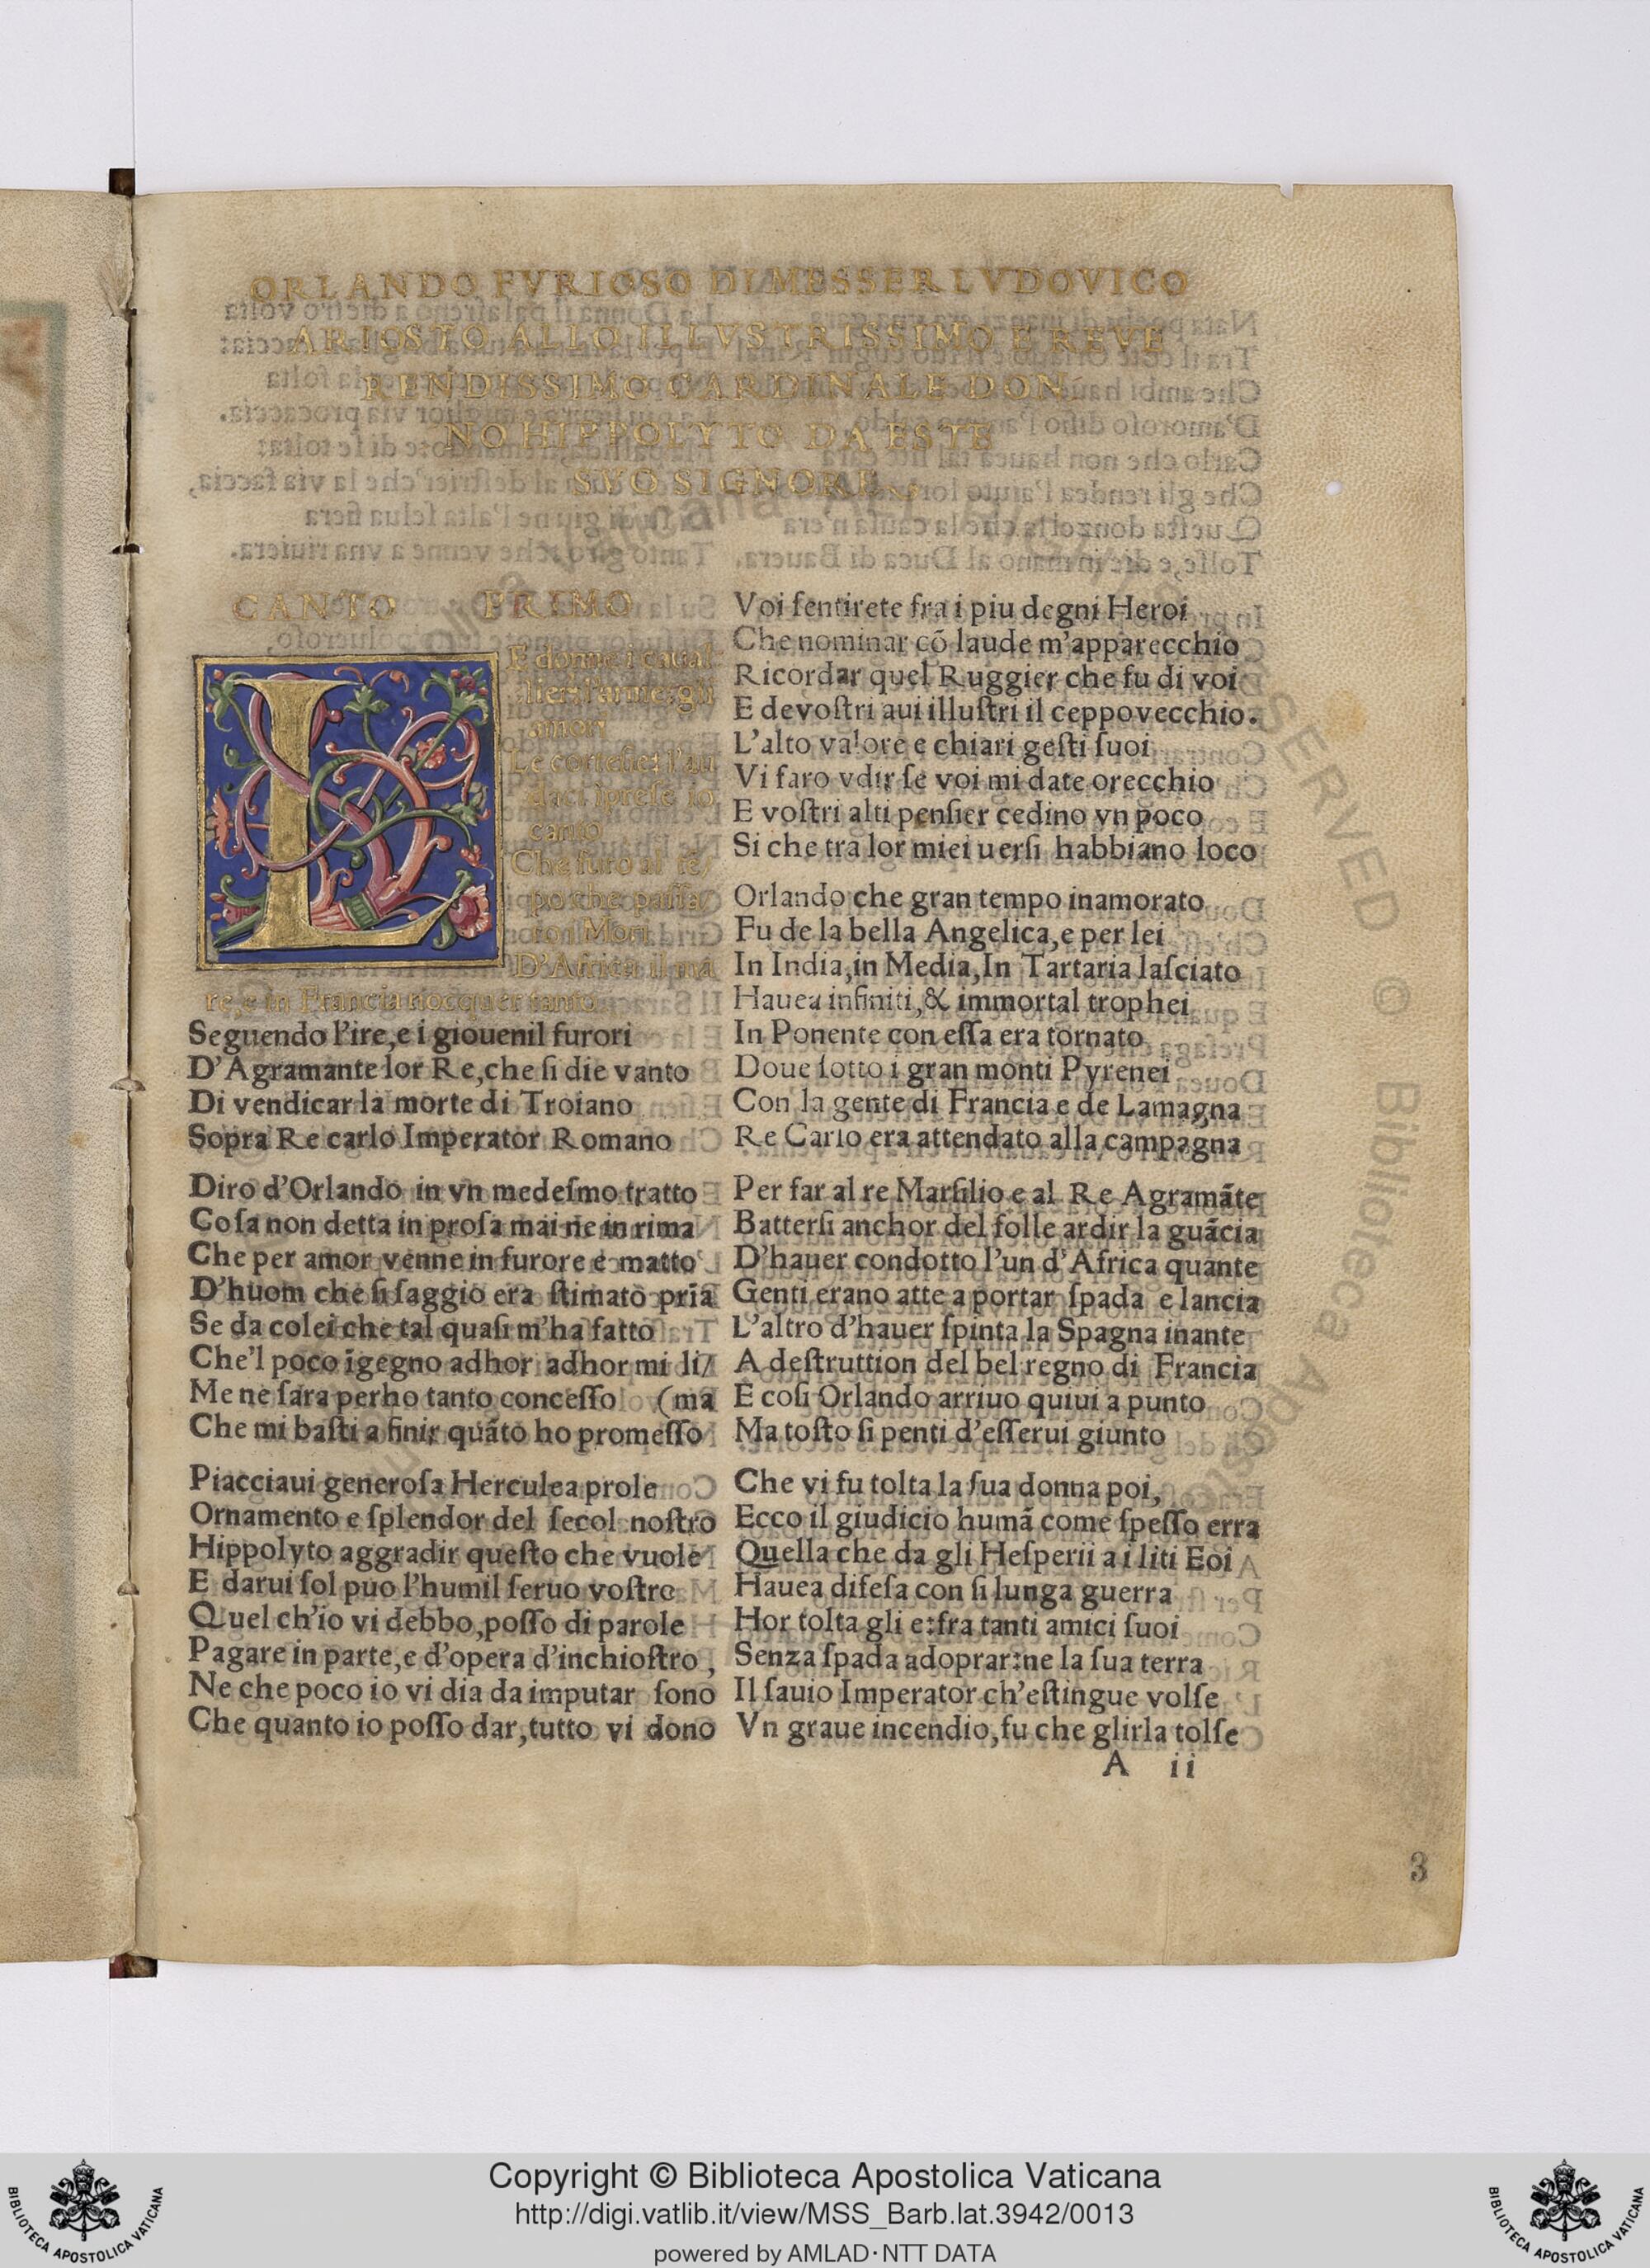 ORLANDO FVRIOSO DI MESSER LVDOVICO
ARIOSTO ALLO ILLVSTRISSIMO E REVE
RENDISSIMO CARDINALE DON
NO HIPPOLYTO DA ESTE
SVO SIGNORE
CANTO PRIMO
E donne i caual
lier: l'arme: gli
amori
Le cortesie: l'au
daci īprese io
canto
Che furo al tē/
po che passa/
ron i Mori
D'Africa il ma
re, e in Francia nocquer tanto
Seguendo l'ire, e i giouenil furori
D'Agramante lor Re, che ſi die vanto
Di vendicar la morte di Troiano
Sopra Re carlo Imperator Romano
Diro d'Orlando in vn medeſmo tratto
Coſa non detta in proſa mai ne in rima
Che per amor venne in furore e matto
D'huom che ſi ſaggio era ſtimato prīa
Se da colei che tal quaſi m'ha fatto
Che'l poco īgegno adhor adhor mi li/
Me ne ſara perho tanto conceſſo (ma
Che mi baſti a finir quāto ho promeſſo
Piacciaui generoſa Herculea prole
Ornamento e ſplendor del ſecol noſtro
Hippolyto aggradir queſto che vuole
E darui ſol puo l'humil ſeruo voſtro
Quel ch'io vi debbo, poſſo di parole
Pagare in parte, e d'opera d'inchioſtro,
Ne che poco io vi dia da imputar ſono
Che quanto io poſſo dar, tutto vi dono
Voi ſentirete fra i piu degni Heroi
Che nominar cō laude m'apparecchio
Ricordar quel Ruggier che fu di voi
E devoſtri aui illuſtri il ceppo vecchio.
L'alto valore e chiari geſti ſuoi
Vi faro vdir ſe voi mi date orecchio
E voſtri alti penſier cedino vn poco
Si che tra lor miei uerſi habbiano loco
Orlando che gran tempo inamorato
Fu de la bella Angelica, e per lei
In India, in Media, In Tartaria laſciato
Hauea infiniti, & immortal trophei
In Ponente con eſſa era tornato
Doue ſotto i gran monti Pyrenei
Con la gente di Francia e de Lamagna
Re Carlo era attendato alla campagna
Per far al re Marſilio e al Re Agramāte
Batterſi anchor del folle ardir la guācia
D'hauer condotto l'un d'Africa quante
Genti erano atte a portar ſpada e lancia
L'altro d'hauer ſpinta la Spagna inante
A deſtruttion del bel regno di Francia
E coſi Orlando arriuo quiui a punto
Ma toſto ſi penti d'eſſerui giunto
Che vi fu tolta la ſua donna poi,
Ecco il giudicio humā come ſpeſſo erra
Quella che da gli Heſperii a i liti Eoi
Hauea difeſa con ſi lunga guerra
Hor tolta gli e: fra tanti amici ſuoi
Senza ſpada adoprar: ne la ſua terra
Il ſauio Imperator ch'eſtingue volſe
Vn graue incendio, fu che glirla tolſe
A ii
3
Copyright © Biblioteca Apostolica Vaticana
http://digi.vatlib.it/view/MSS_Barb.lat.3942/0013
powered by AMLAD·NTT DATA
BIBLIOTECA APOSTOLICA VATICANA
BIBLIOTECA APOSTOLICA VATICANA